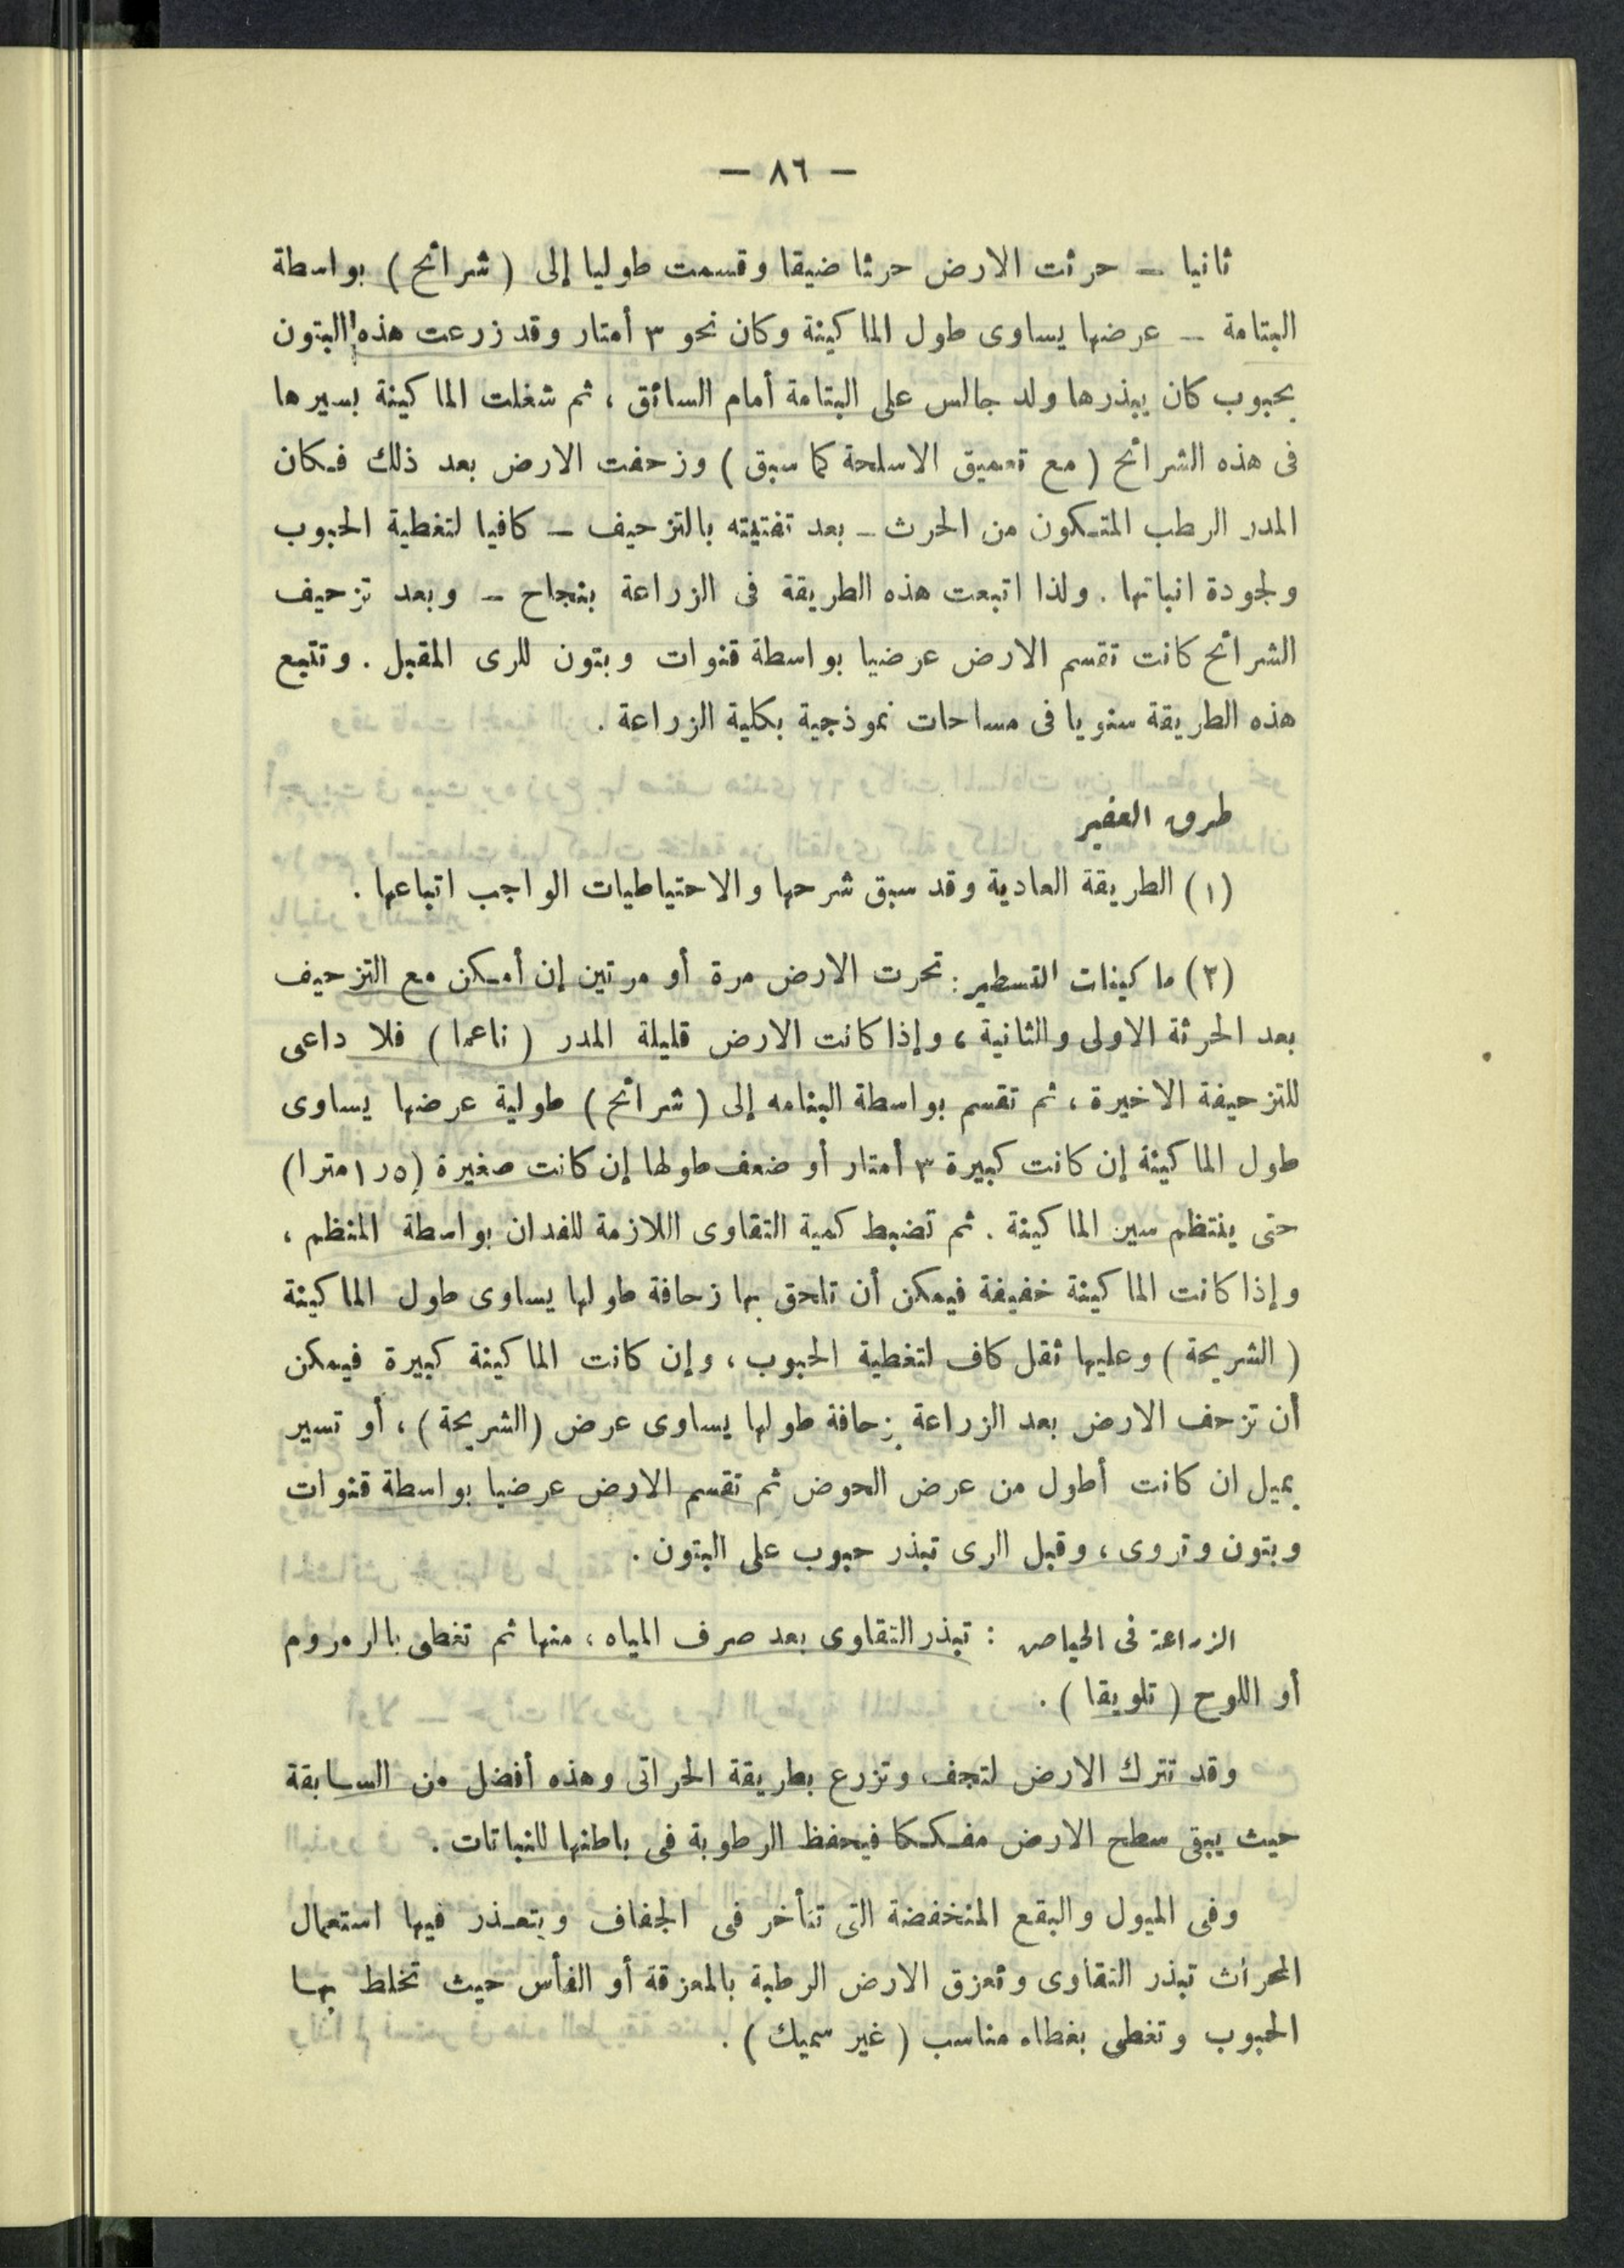 — ٨٦ —
ثانيا — حرثت الارض حرثا ضيقا وقسمت طوليا إلى ( شرائح ) بواسطة
البتامة — عرضها يساوى طول الماكينة وكان نحو ٣ أمتار وقد زرعت هذه البتون
بحبوب كان يبذرها ولد جالس على البتامة أمام السائق ، ثم شغلت الماكينة بسيرها
فى هذه الشرائح ( مع تعميق الاسلحة كما سبق ) وزحفت الارض بعد ذلك فكان
المدر الرطب المتكون من الحرث — بعد تفتيته بالتزحيف — كافيا لتغطية الحبوب
ولجودة انباتها . ولذا اتبعت هذه الطريقة فى الزراعة بنجاح — وبعد تزحيف
الشرائح كانت تقسم الارض عرضيا بواسطة قنوات وبتون للرى المقبل . وتتبع
هذه الطريقة سنويا فى مساحات نموذجية بكلية الزراعة .
طرق العفير
(١) الطريقة العادية وقد سبق شرحها والاحتياطيات الواجب اتباعها .
(٢) ماكينات التسطير : تحرث الارض مرة أو مرتين إن أمكن مع التزحيف
بعد الحرثة الاولى والثانية ، وإذا كانت الارض قليلة المدر ( ناعما ) فلا داعى
للتزحيفة الاخيرة ، ثم تقسم بواسطة البتامه إلى ( شرائح ) طولية عرضها يساوى
طول الماكينة إن كانت كبيرة ٣ أمتار أو ضعف طولها إن كانت صغيرة (١٫٥ مترا)
حتى ينتظم سير الماكينة . ثم تضبط كمية التقاوى اللازمة للفدان بواسطة المنظم ،
وإذا كانت الماكينة خفيفة فيمكن أن تلحق بها زحافة طولها يساوى طول الماكينة
( الشريحة ) وعليها ثقل كاف لتغطية الحبوب ، وإن كانت الماكينة كبيرة فيمكن
أن تزحف الارض بعد الزراعة بزحافة طولها يساوى عرض (الشريحة) ، أو تسير
بميل ان كانت أطول من عرض الحوض ثم تقسم الارض عرضيا بواسطة قنوات
وبتون وتروى ، وقبل الرى تبذر حبوب على البتون .
الزراعة فى الحياض : تبذر التقاوى بعد صرف المياه ، منها ثم تغطى بالرمروم
أو اللوح ( تلويقا ) .
وقد تترك الارض لتجف وتزرع بطريقة الحراتى وهذه أفضل من السابقة
حيث يبقى سطح الارض مفككا فيحفظ الرطوبة فى باطنها للنباتات .
وفى الميول والبقع المنخفضة التى تتأخر فى الجفاف ويتعذر فيها استعمال
المحراث تبذر التقاوى وتعزق الارض الرطبة بالمعزقة أو الفأس حيث تخلط بها
الحبوب وتغطى بغطاء مناسب ( غير سميك ) .